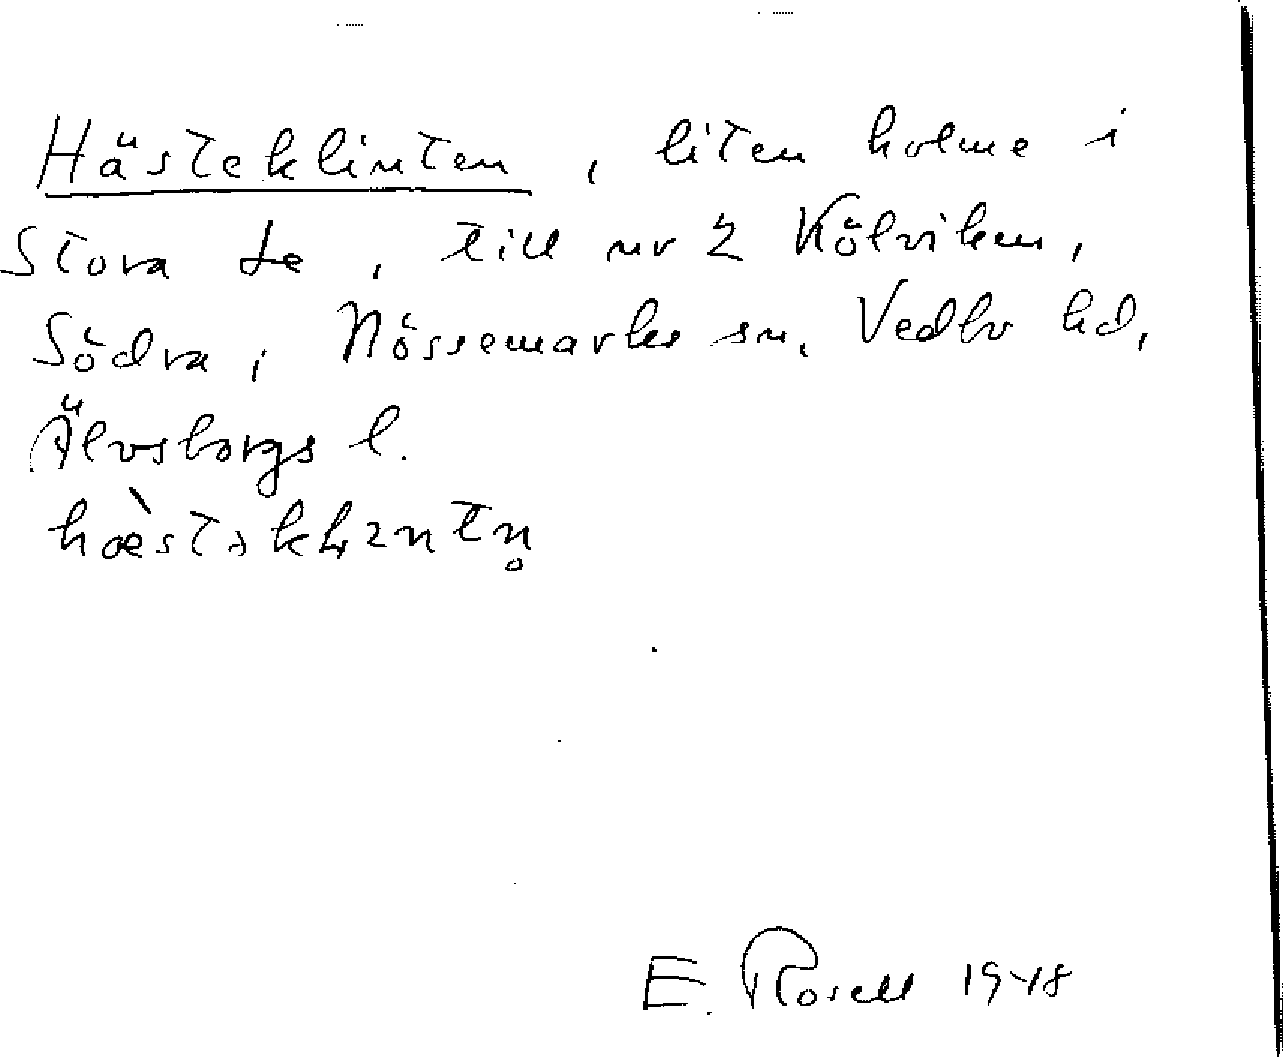 Hästeklinten, liten holme i
Stora Le, till nr 2 Kölviken,
Södra, Nössemarks sn. Vedbo hd,
Älvsborgs l.
E. Rosell 1948